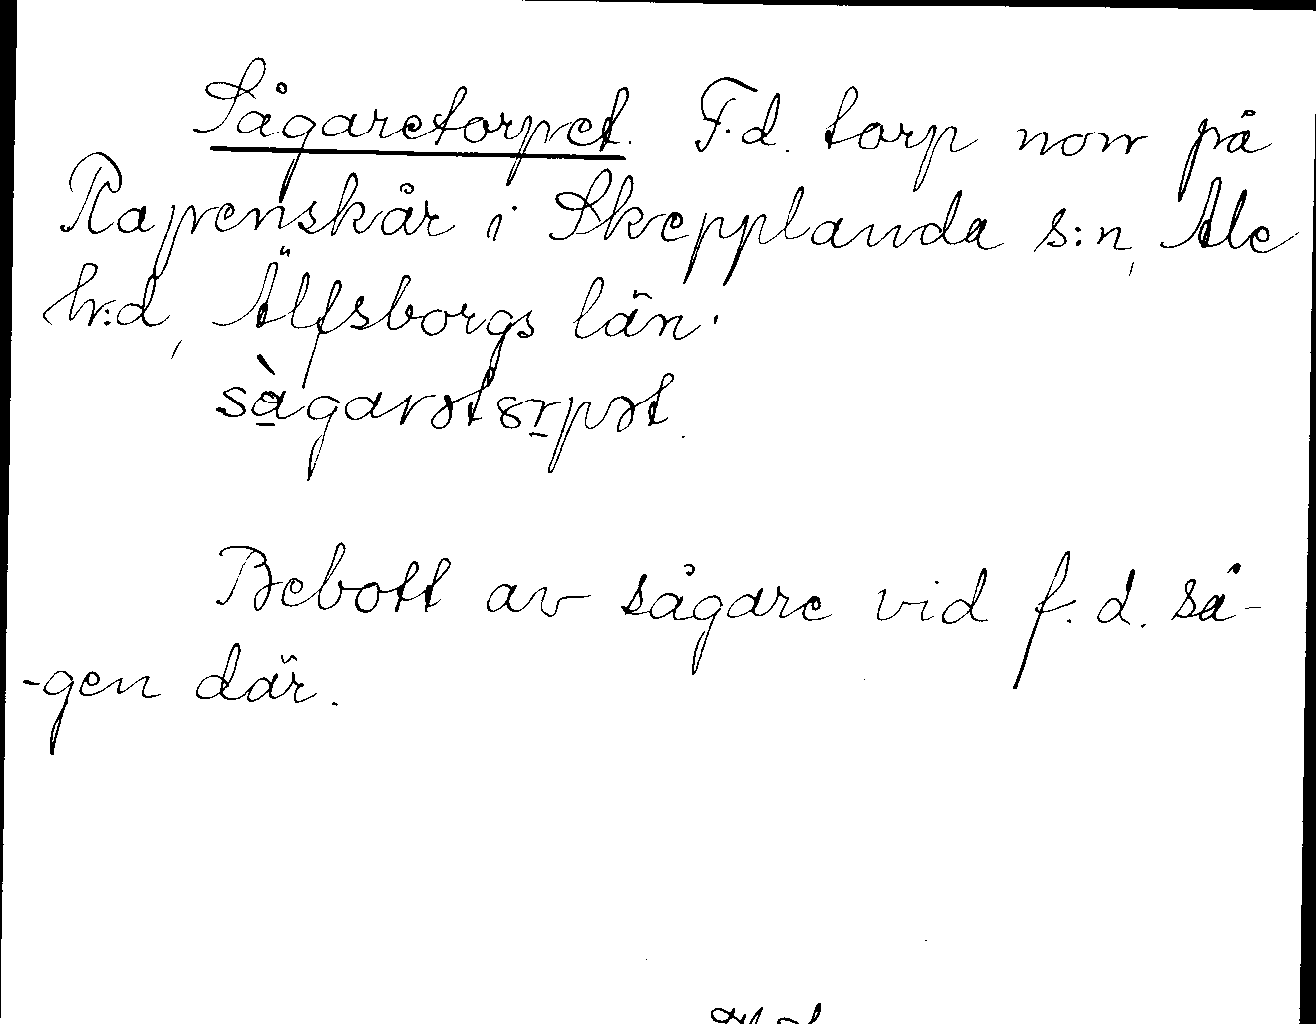 Sågaretorpet. F.d. torp norr på
Rapenskår i Skepplanda s:n, Ale
h:d, Älfsborgs län.
sàgarətȣrpət.
Bebott av sågare vid f.d. så-
-gen där.